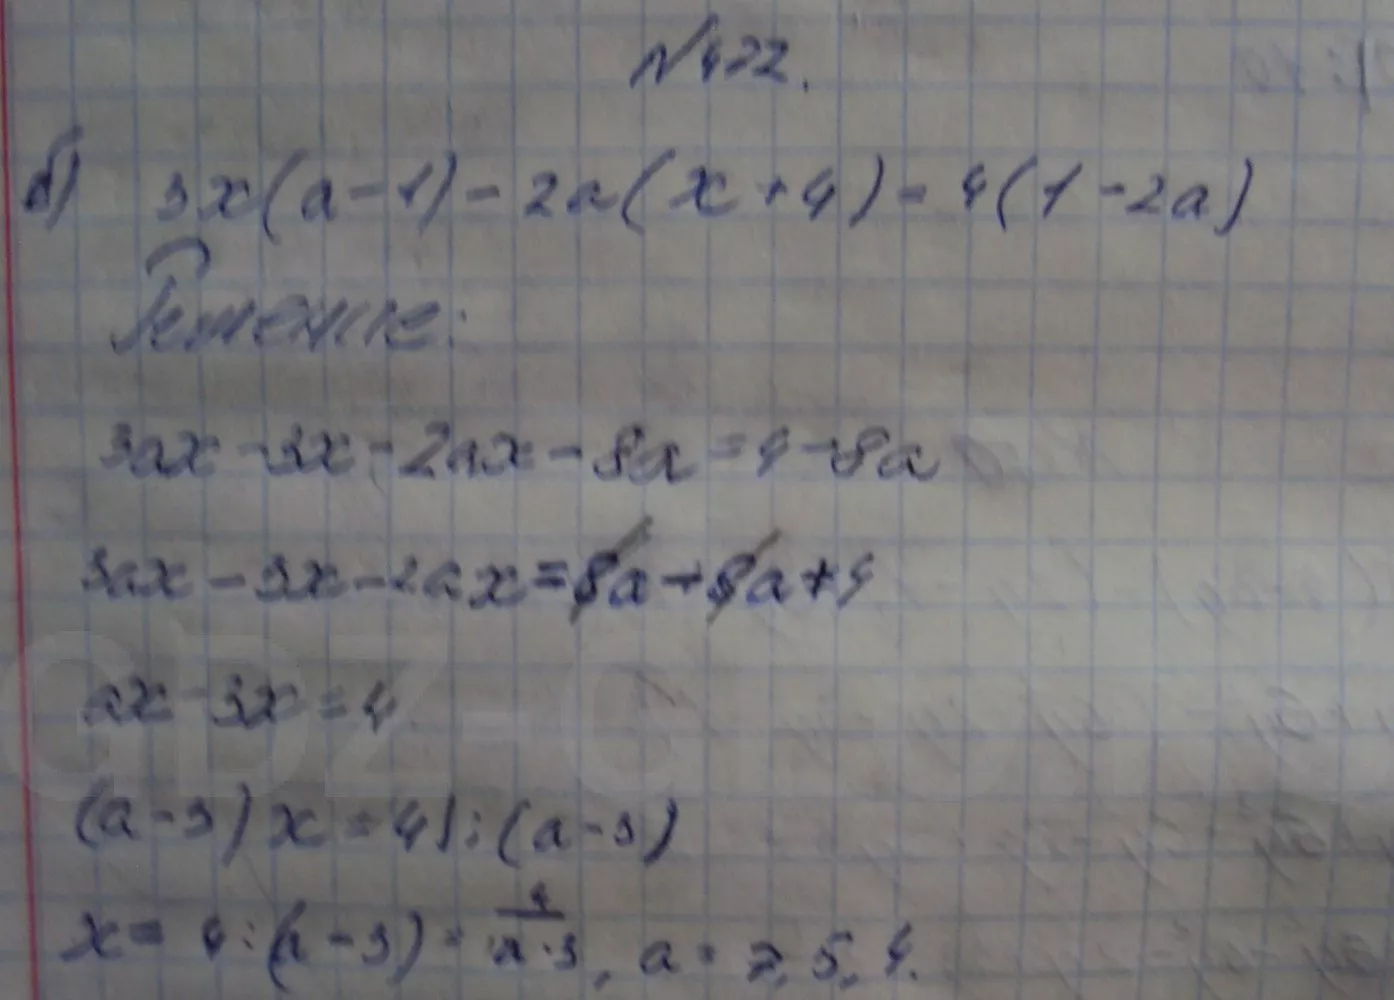 №472.
б) 3x(a-1)-2a(x+4)=4(1-2a)
Решение:
3ax-3x-2ax-8a=4-8a
3ax-3x-2ax=8a-8a+4
ax-3x=4
(a-3)x=4|:(a-3)
x=4:(a-3)=4/(a-3), a=7,5,4.